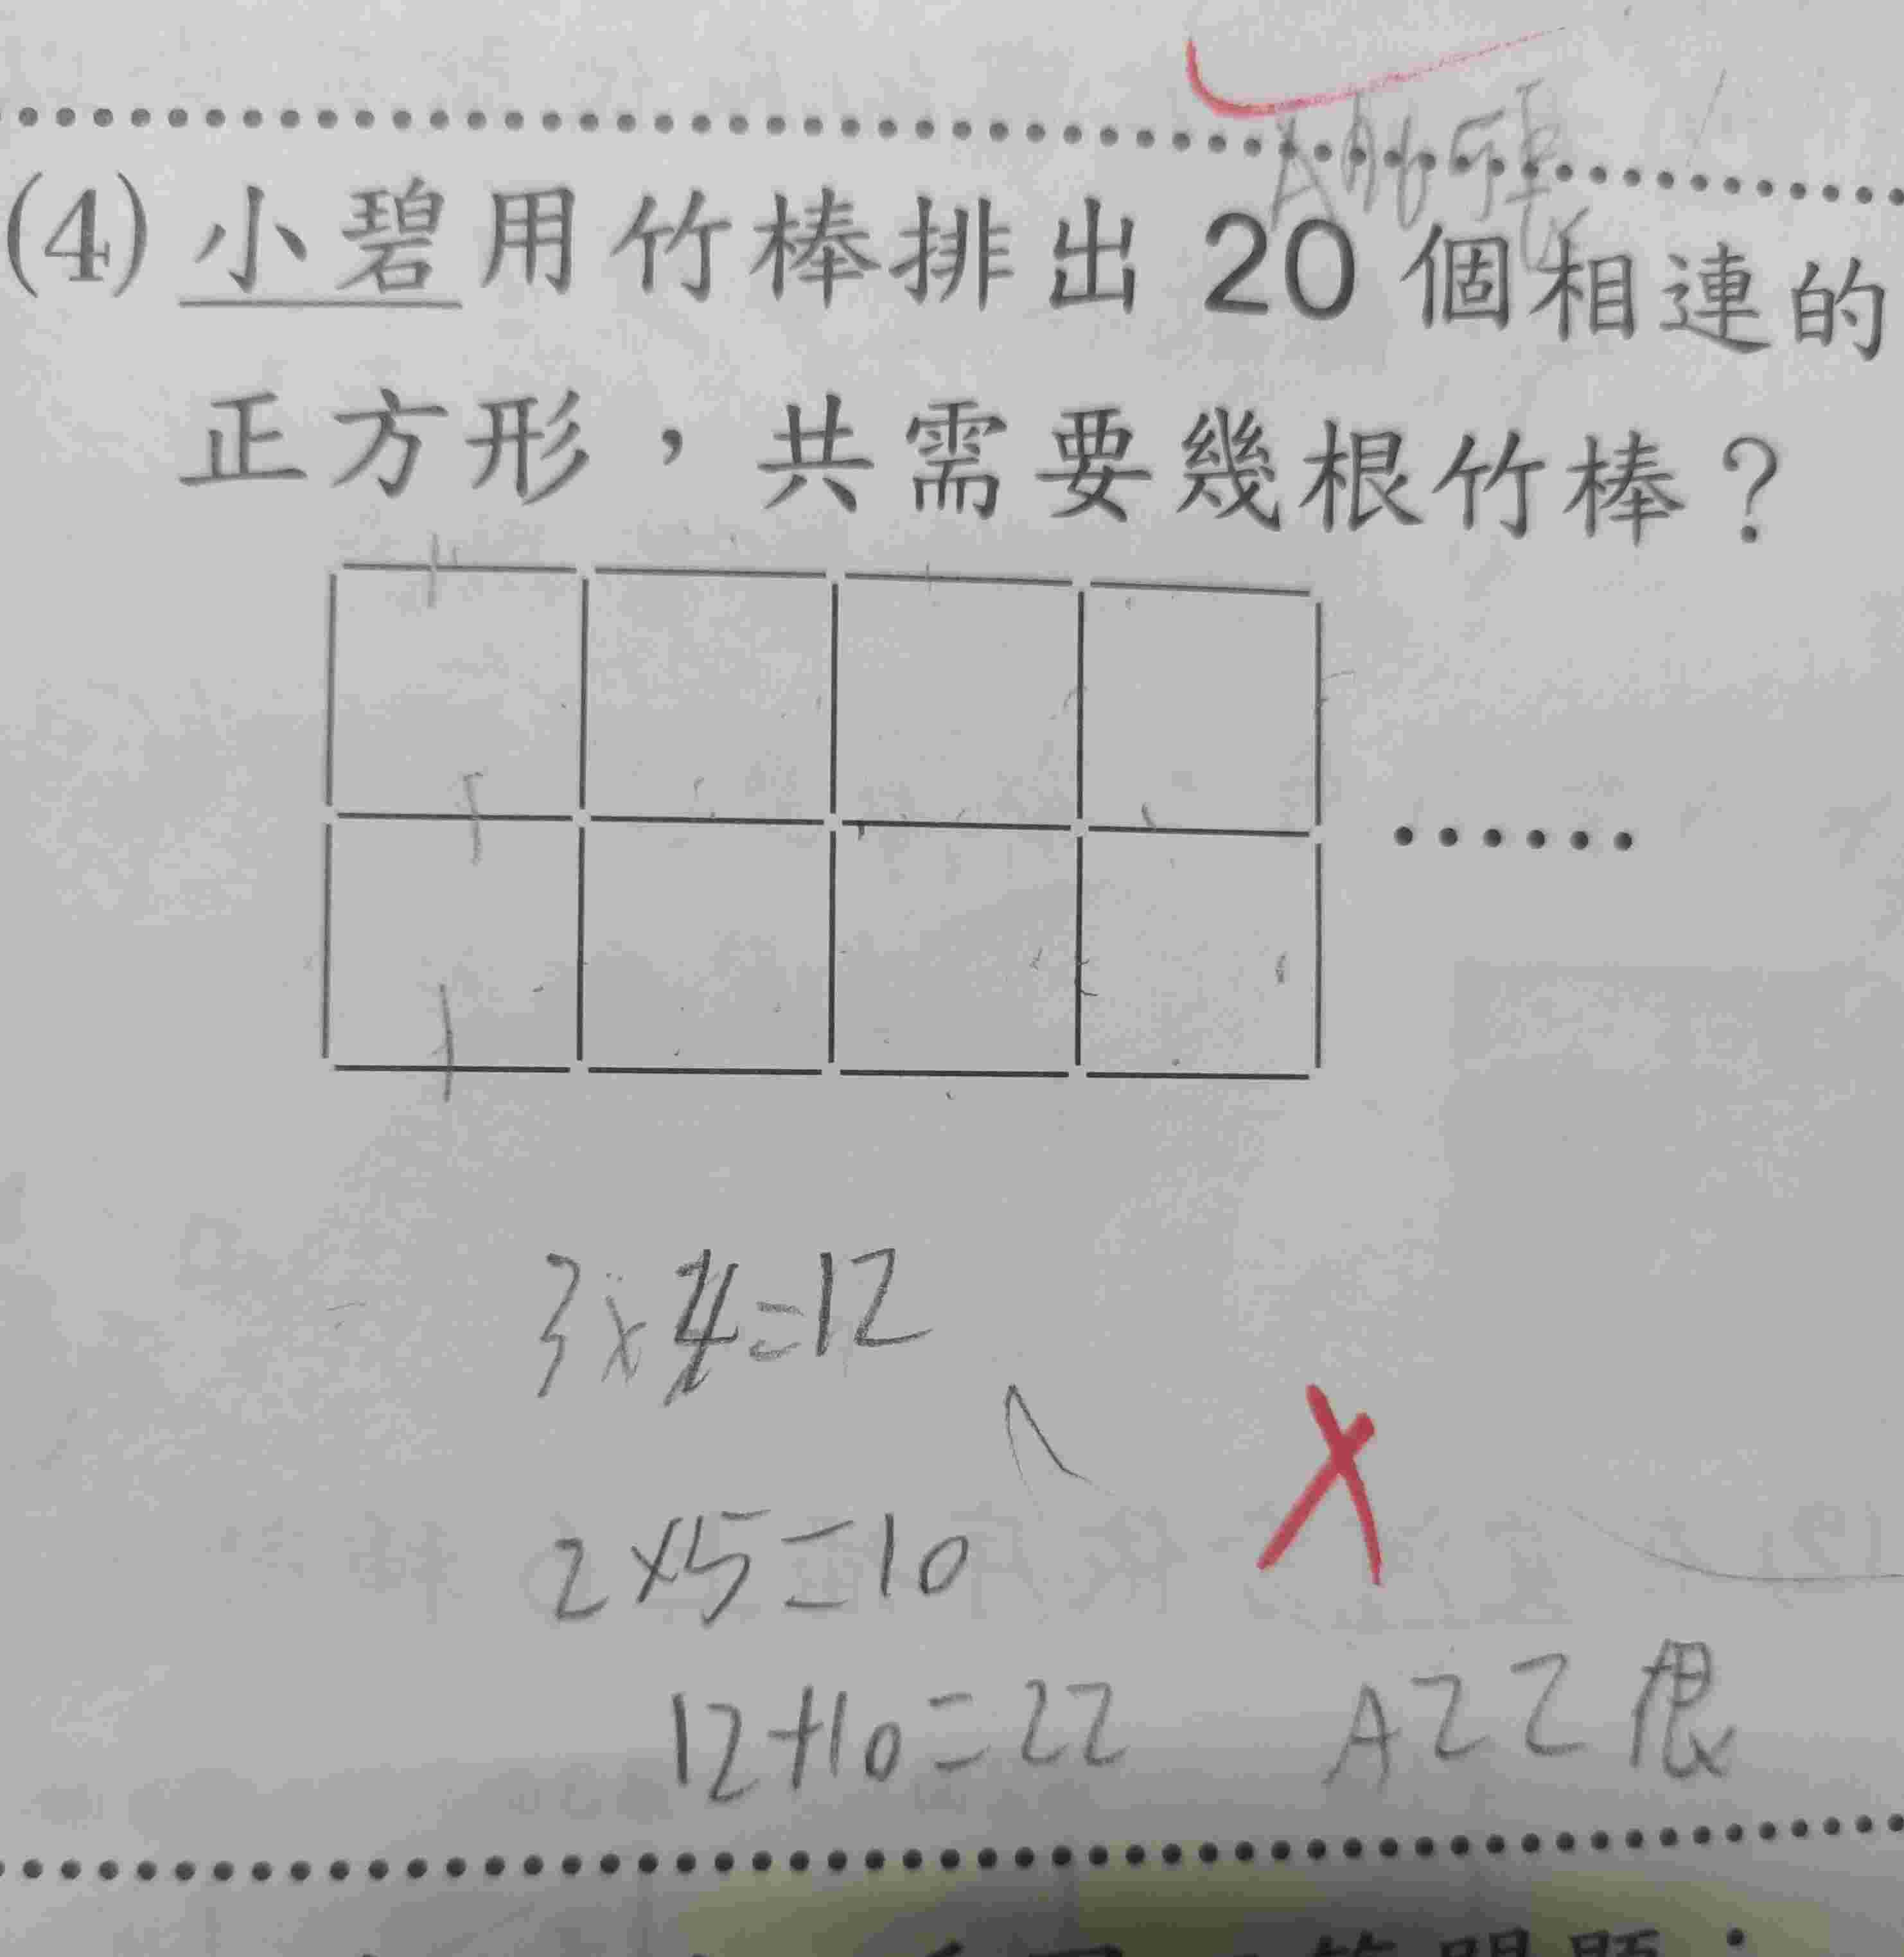 (4) 小碧用竹棒排出 20 個相連的
正方形，共需要幾根竹棒？
......
3×4=12
2×5=10
12+10=22 A22根